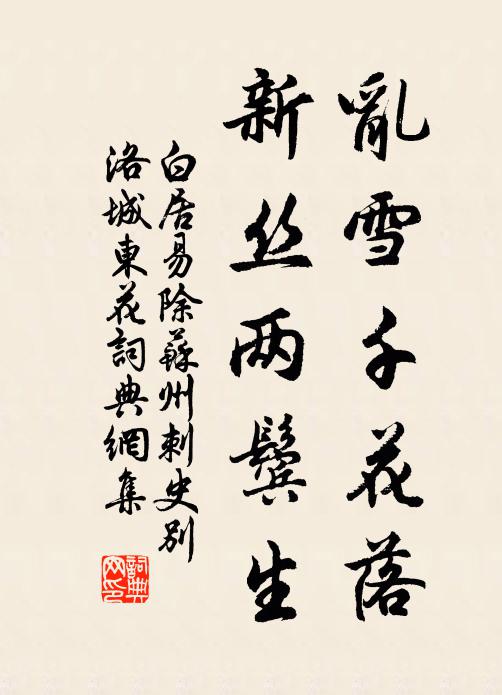 亂雪千花落
新丝两鬓生
白居易除蘇州刺史別
洛城東花詞典網集
詞典网印